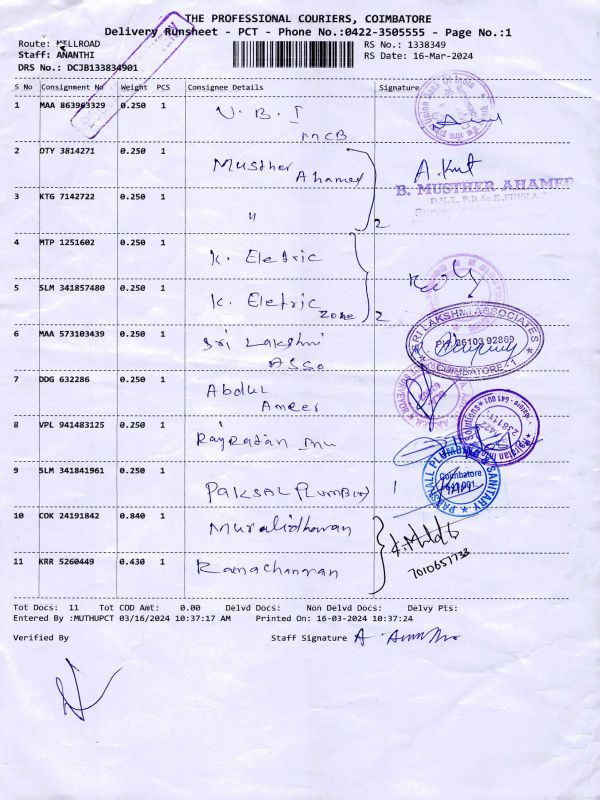 THE PROFESSIONAL COURIERS, COIMBATORE
Delivery Runsheet - PCT - Phone No.:0422-3505555 - Page No.:1
Route: MILLROAD RS No.: 1338349
Staff: ANANTHI RS Date: 16-Mar-2024
DRS No.: DCJB133834901
S No Consignment No Weight PCS Consignee Details Signature
1 MAA 863903329 0.250 1 U.B.I
MCB
2 DTY 3814271 0.250 1 Musther
Ahamed
A.Kut
B. MUSTHER AHAMED
3 KTG 7142722 0.250 1 "
2
4 MTP 1251602 0.250 1 K. Eletric
5 SLM 341857480 0.250 1 K. Eletric
Zone 2
SRI LAKSHMI ASSOCIATES
PH: 86103 92869
COIMBATORE-21
6 MAA 573103439 0.250 1 Sri Lakshmi
Asso
7 DDG 632286 0.250 1 Abdul
Ameer
8 VPL 941483125 0.250 1 Rajratan Inu
9 SLM 341841961 0.250 1 PAKSAL PLUMBING
PAKSHALL PLUMBING & SANITARY
Coimbatore
641 001.
10 COK 24191842 0.840 1 Muralidharan
11 KRR 5260449 0.430 1 Ramachandran
7010657733
Tot Docs: 11 Tot COD Amt: 0.00 Delvd Docs: Non Delvd Docs: Delvy Pts:
Entered By :MUTHUPCT 03/16/2024 10:37:17 AM Printed On: 16-03-2024 10:37:24
Verified By Staff Signature